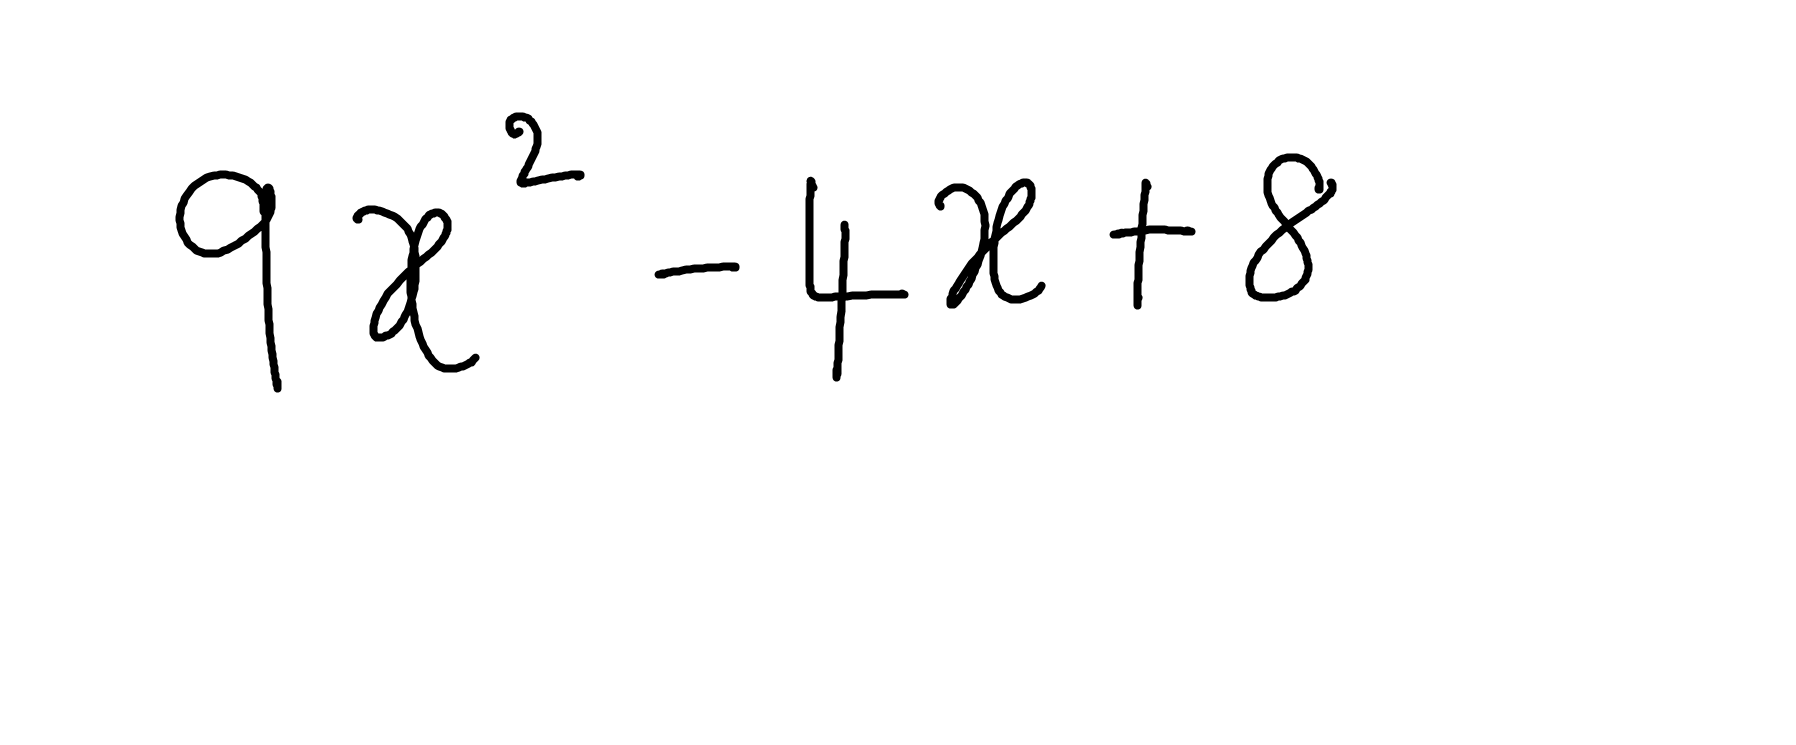 9x² - 4x + 8